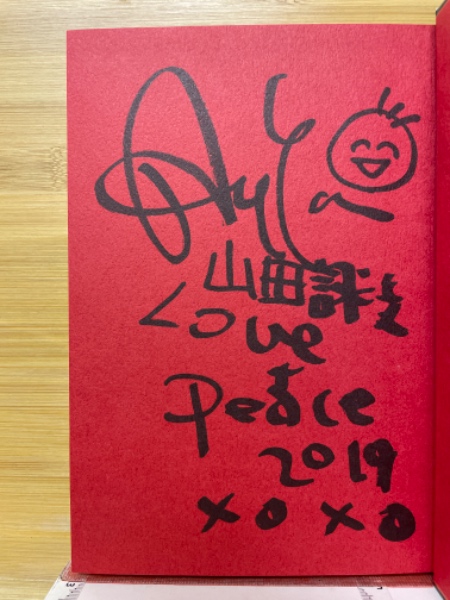 山田詠美
Love
&
Peace
2019
xoxo